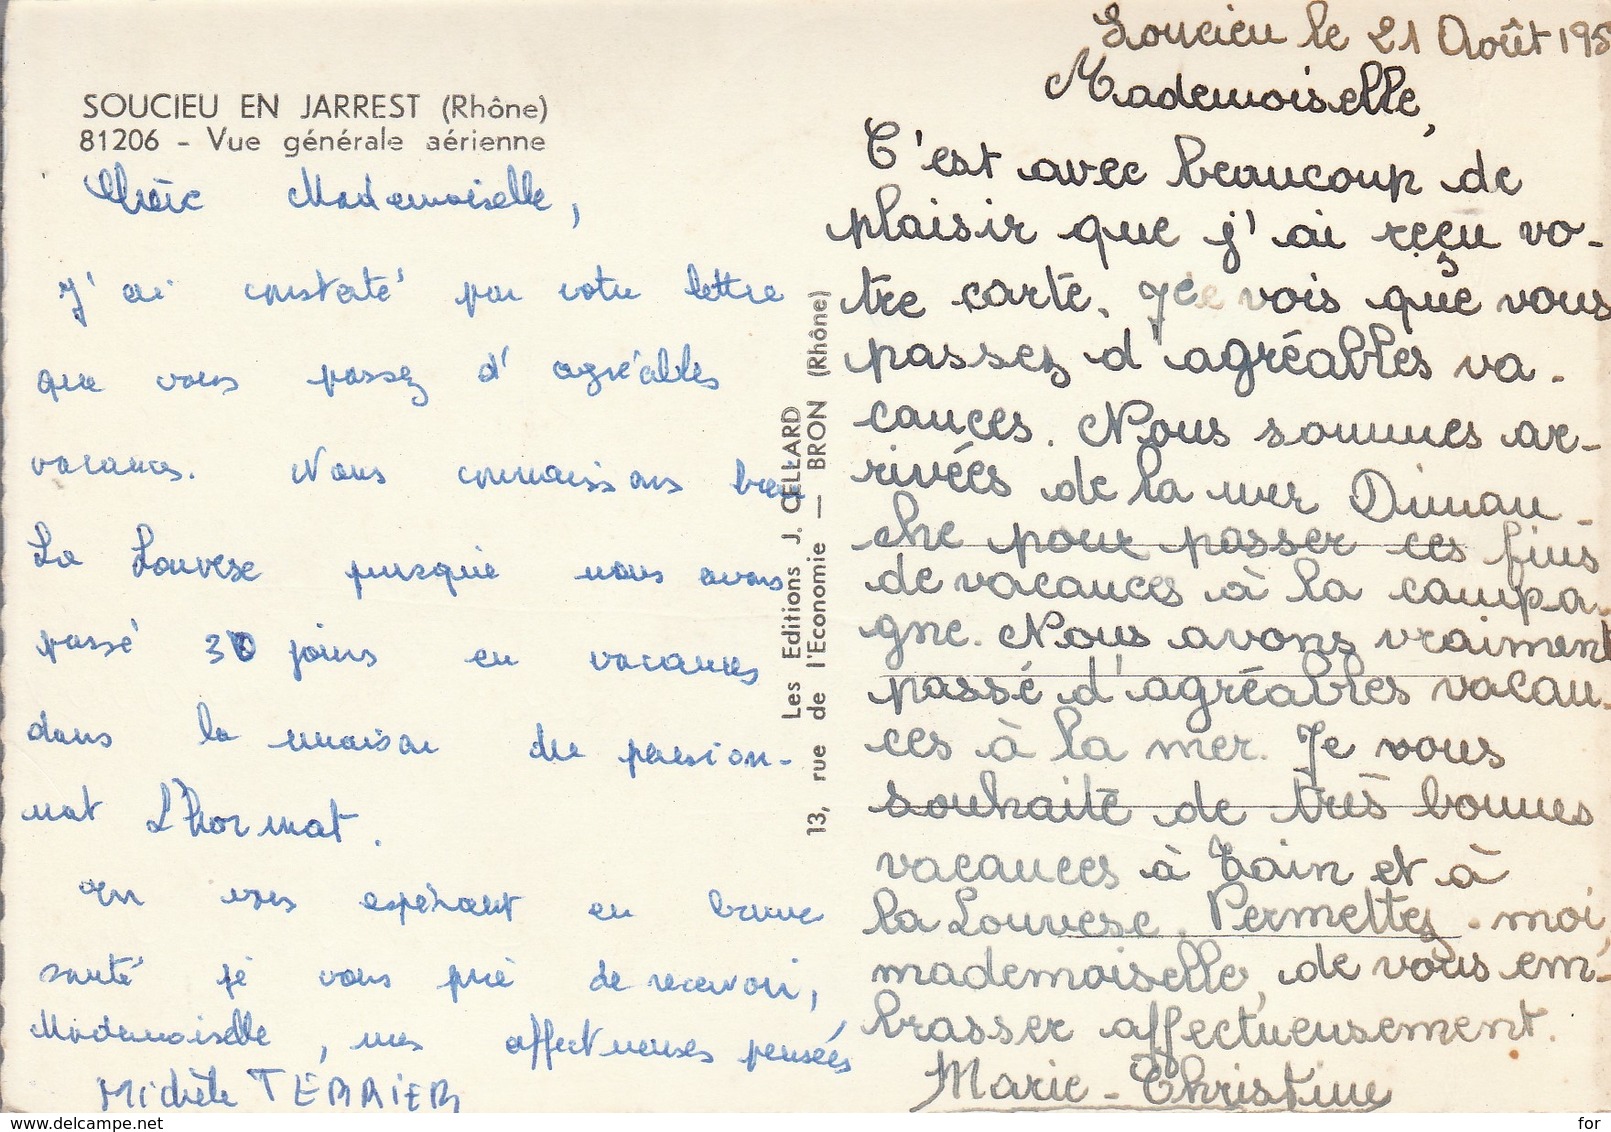 SOUCIEU EN JARREST (Rhône)
81206 - Vue générale aérienne
Chère Mademoiselle,
J'ai constaté par votre lettre
que vous passez d'agréables
vacances. Nous connaissons bien
La Louvesc puisque nous avons
passé 30 jours en vacances
dans la maison du pension-
nat L'hormat.
En vous espérant en bonne
santé je vous prie de recevoir,
Mademoiselle, mes affectueuses pensées
Michèle TERRIER
Les Editions J. CELLARD
13, rue de l'Economie — BRON (Rhône)
Soucieu le 21 Août 195
Mademoiselle,
C'est avec beaucoup de
plaisir que j'ai reçu vo-
tre carte. Je vois que vous
passez d'agréables va-
cances. Nous sommes ar-
rivées de la mer Diman-
che pour passer ces fins
de vacances à la campa-
gne. Nous avons vraiment
passé d'agréables vacan-
ces à la mer. Je vous
souhaite de très bonnes
vacances à Tain et à
la Louvesc. Permettez-moi,
mademoiselle, de vous em-
brasser affectueusement.
Marie-Christine
www.delcampe.net
for